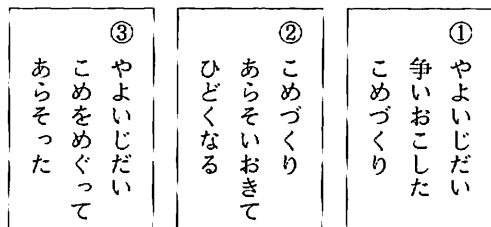 ① やよいじだい
争いおこした
こめづくり
② こめづくり
あらそいおきて
ひどくなる
③ やよいじだい
こめをめぐって
あらそった